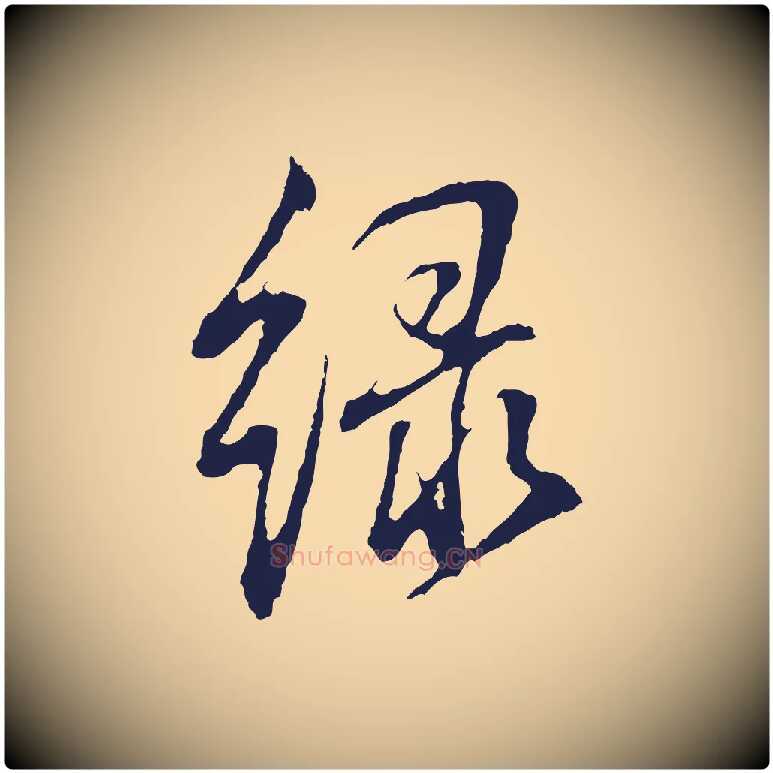 绿
Shufawang.CN